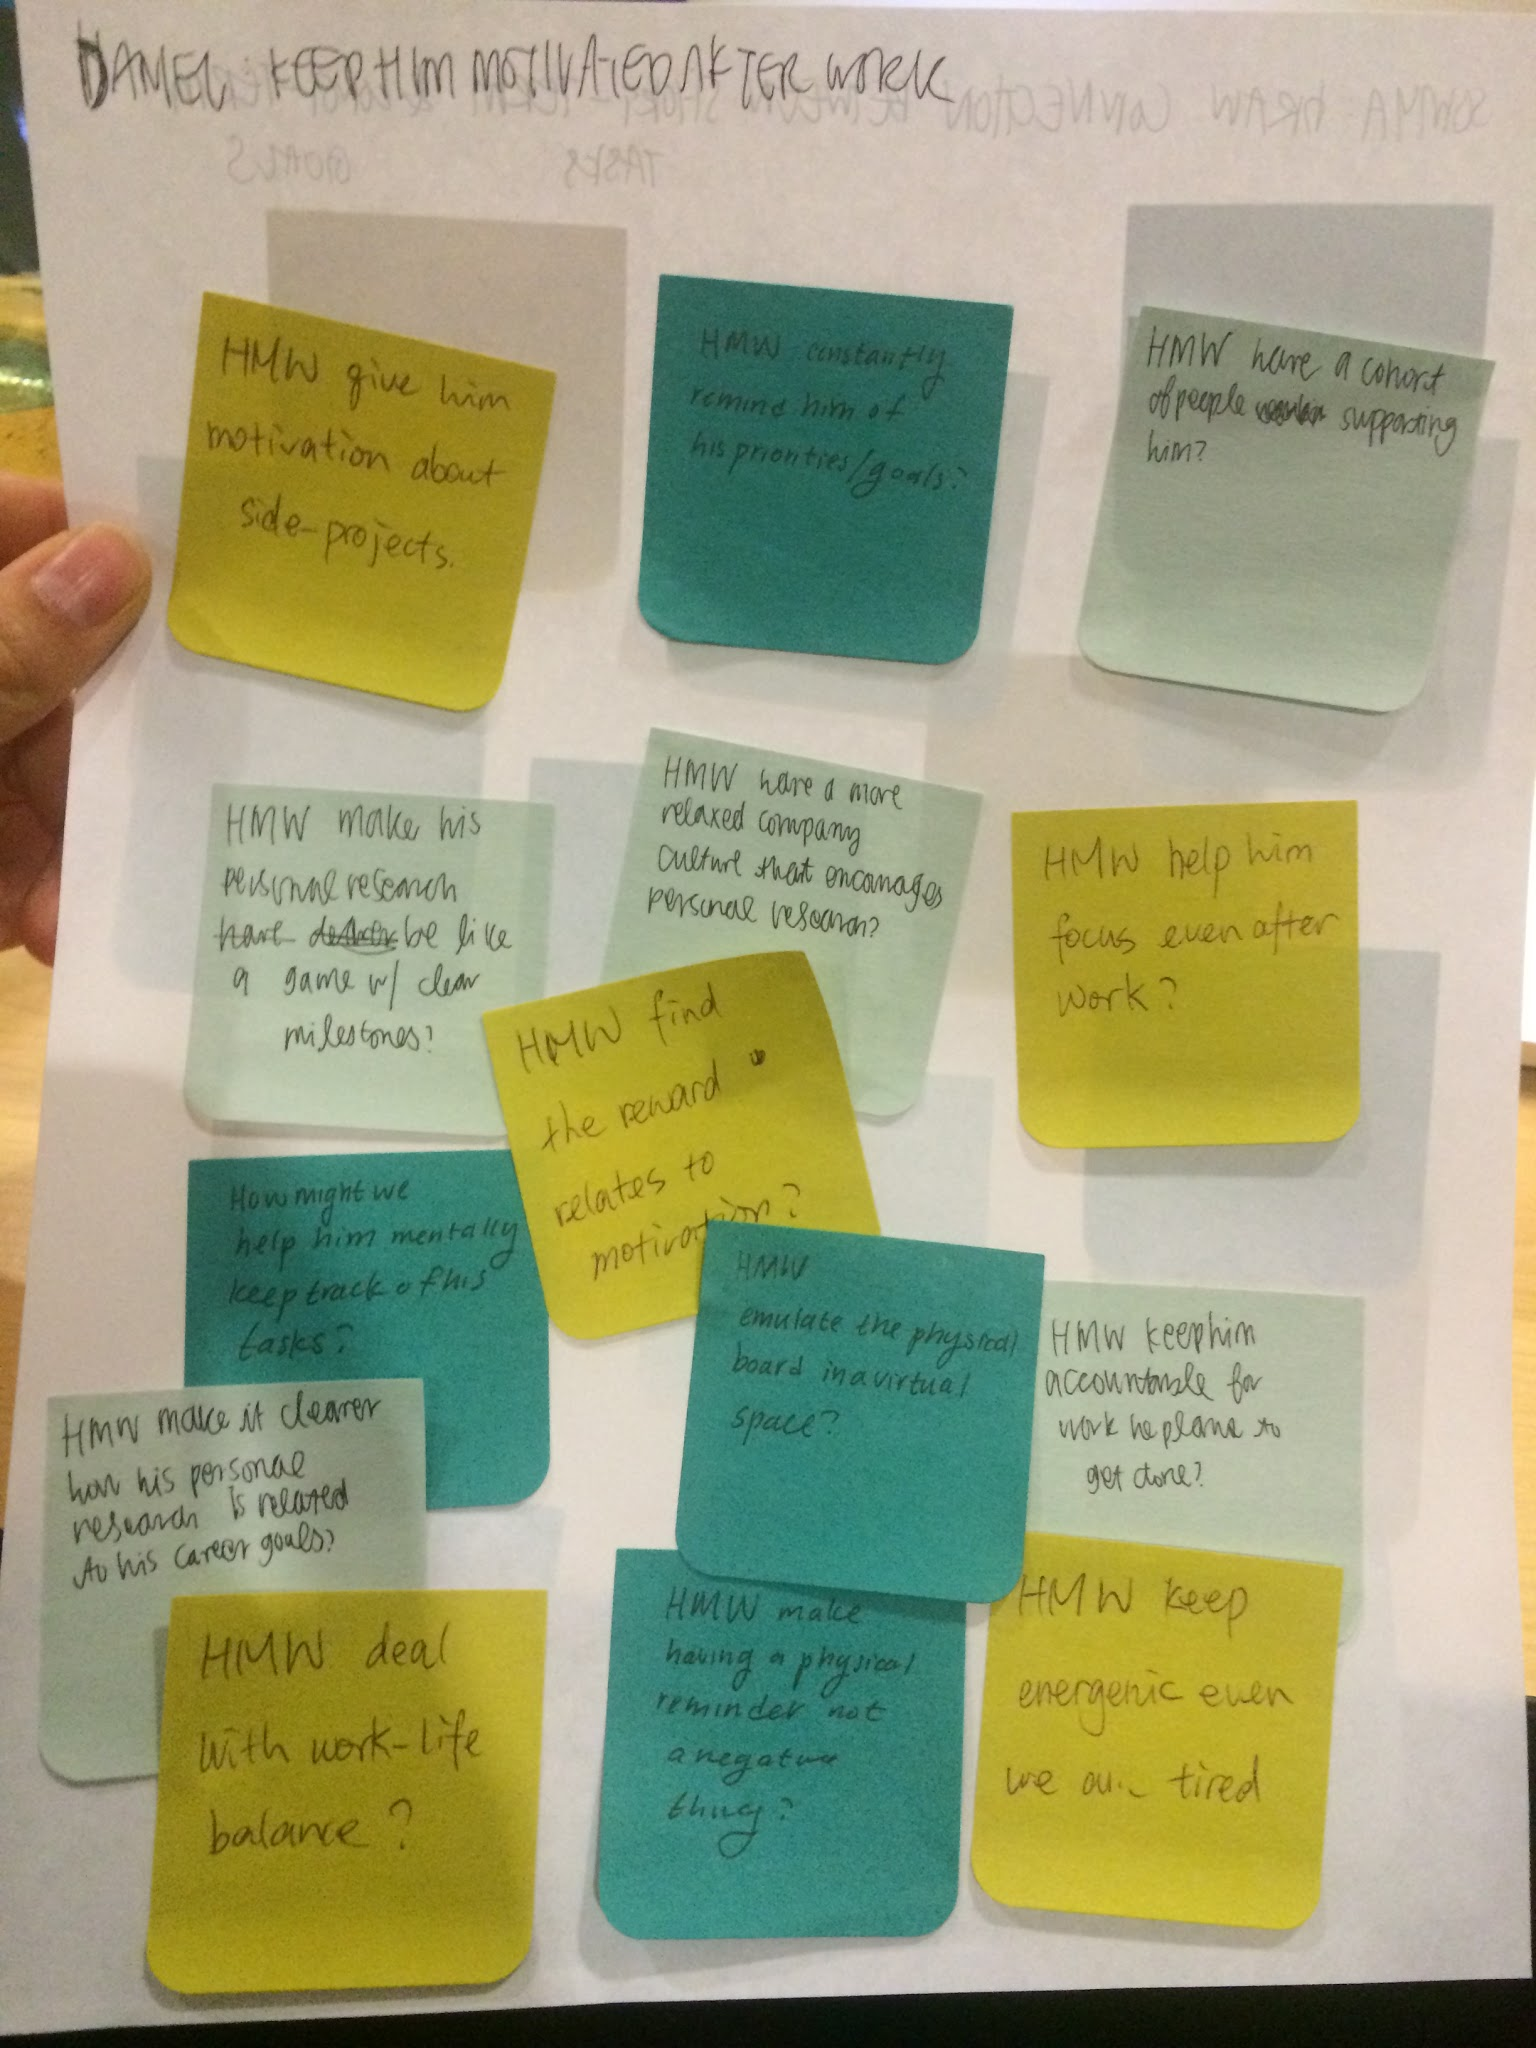 DANIEL: KEEP HIM MOTIVATED AFTER WORK
SOMYA: DRAW CONNECTION BETWEEN SHORT-TERM
TASKS
GOALS
HMW give him
motivation about
side-projects.
HMW constantly
remind him of
his priorities/goals?
HMW have a cohort
of people supporting
him?
HMW make his
personal research
have be like
a game w/ clear
milestones?
HMW have a more
relaxed company
culture that encourages
personal research?
HMW help him
focus even after
work?
HMW find
the reward
relates to
motivation?
How might we
help him mentally
keep track of his
tasks?
HMW
emulate the physical
board in a virtual
space?
HMW keep him
accountable for
work he plans to
get done?
HMW make it clearer
how his personal
research is related
to his career goals?
HMW deal
with work-life
balance?
HMW make
having a physical
reminder not
a negative
thing?
HMW keep
energenic even
we tired